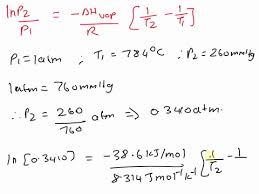 lnP₂/P₁ = -ΔHvap/R [1/T₂ - 1/T₁]
P₁ = 1atm ; T₁ = 784°C ; P₂ = 260mmHg
1atm = 760mmHg
∴ P₂ = 260/760 atm ⇒ 0.3410atm.
ln[0.3410] = -38.6kJ/mol / 8.314Jmol⁻¹k⁻¹ [1/T₂ - 1